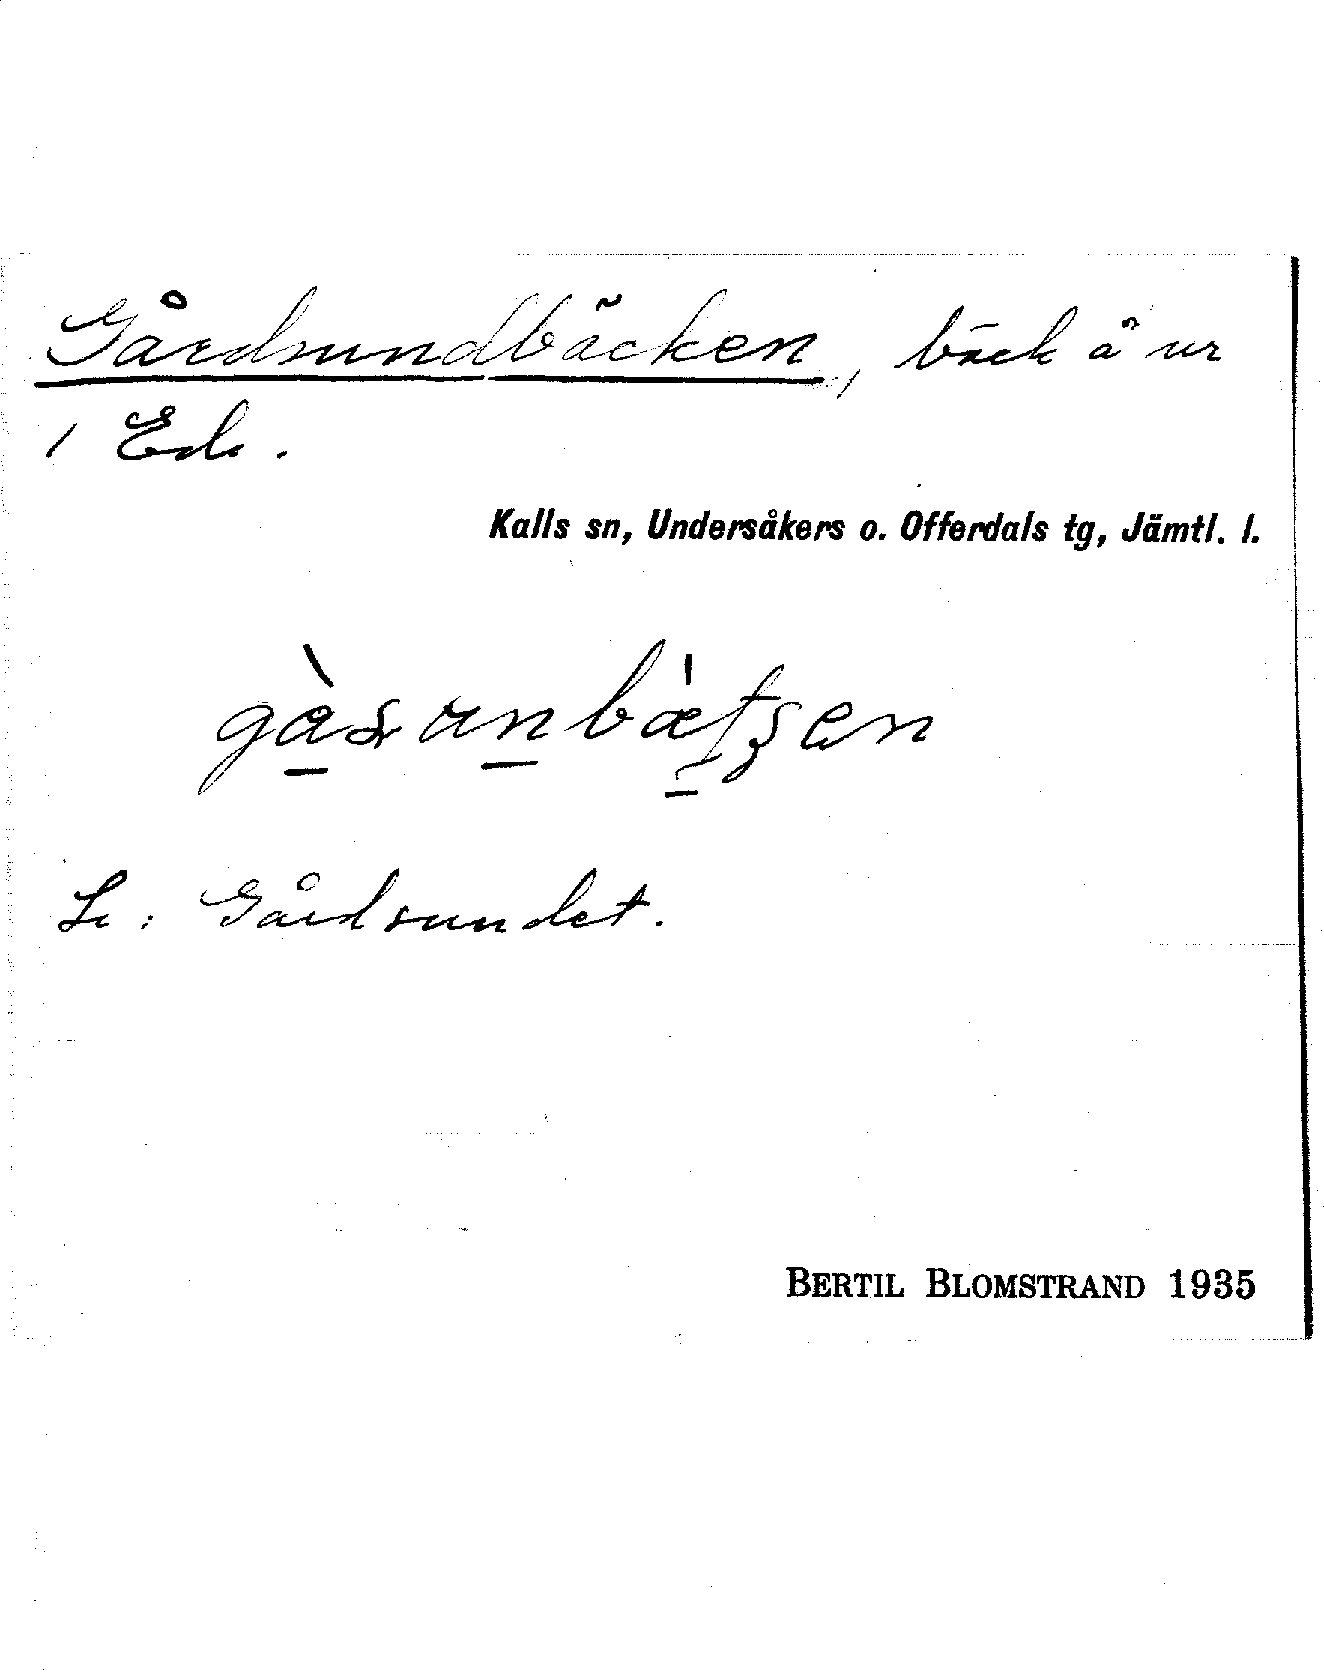 Gårdsundbäcken, bäck å nr
1 Ede.
Kalls sn, Undersåkers o. Offerdals tg, Jämtl. l.
Se: Gårdsundet.
BERTIL BLOMSTRAND 1935